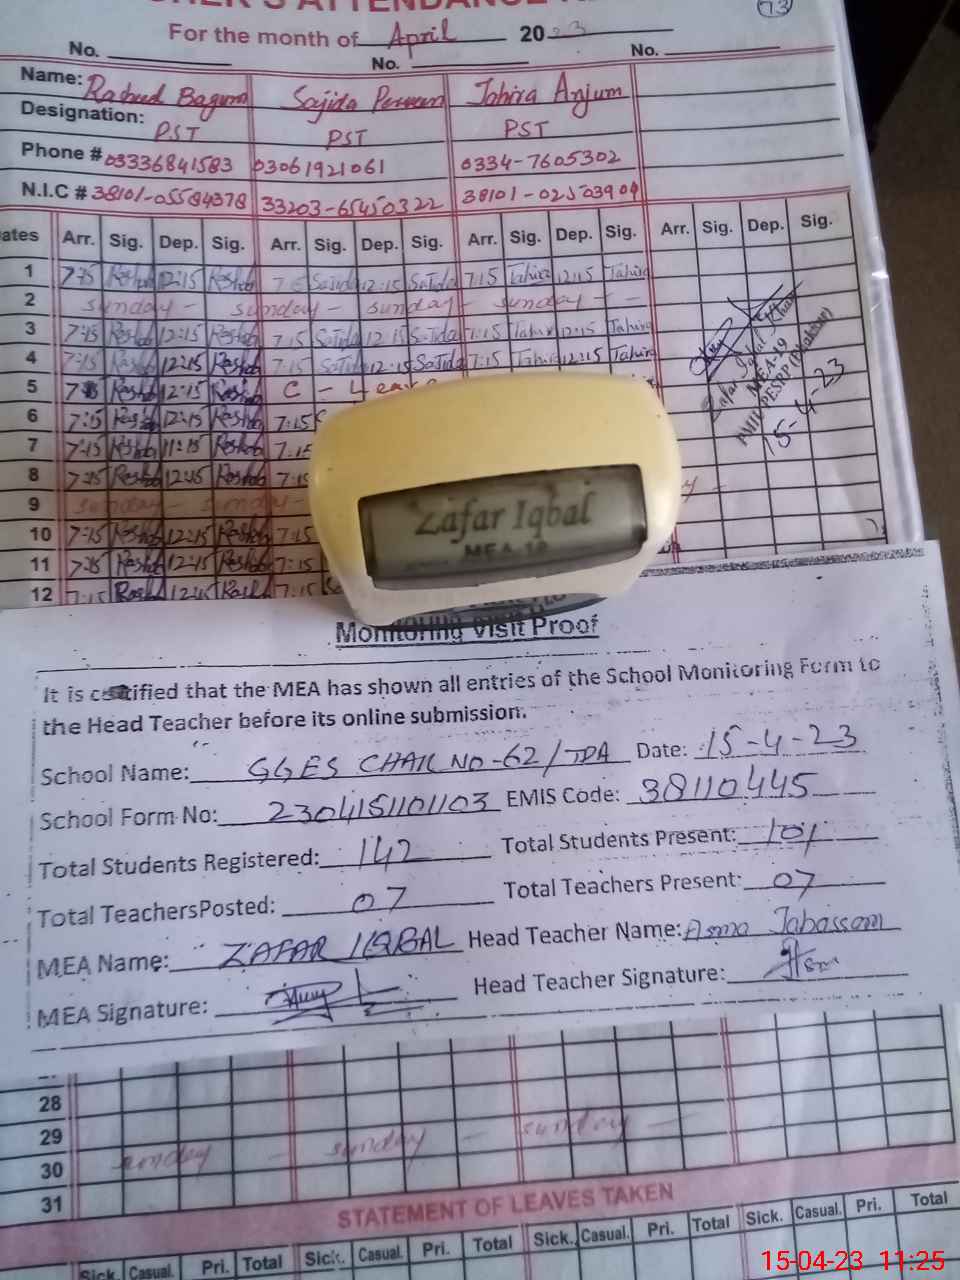 TEACHER'S ATTENDANCE
73
For the month of April 2023
No. No. No.
Name: Rashud Bagum Sajida Perveen Tahira Anjum
Designation: PST PST PST
Phone # 03336841583 03061921061 0334-7605302
N.I.C # 38101-05584378 33203-6545032 2 38101-0250390 4
ates Arr. Sig. Dep. Sig. Arr. Sig. Dep. Sig. Arr. Sig. Dep. Sig. Arr. Sig. Dep. Sig.
1 7:15 12:15 7:15 Sajida 12:15 Sajida 7:15 Tahira 12:15 Tahira
2 sunday - sunday - sunday - sunday - -
3 7:15 12:15 7:15 Sajida 12:15 Sajida 7:15 Tahira 12:15 Tahira
4 7:15 12:15 7:15 Sajida 12:15 Sajida 7:15 Tahira 12:15 Tahira
5 12:15 C - Lea
6 7:15 12:15 7:15
7 7:15 11:15 7:15
8 7:15 12:15 7:15
9 sunday - sunday -
10 7:15 12:15 7:15
11 7:15 12:15 7:15
12 7:15 12:15 7:15
Zafar Iqbal
MEA-19
PMIU PESRP (Bhakkar)
15-4-23
Zafar Iqbal
MEA-19
Monitoring Visit Proof
It is certified that the MEA has shown all entries of the School Monitoring Form to
the Head Teacher before its online submission.
School Name: GGES CHAK NO-62/TDA Date: 15-4-23
School Form No: 2304151101103 EMIS Code: 38110445
Total Students Registered: 142 Total Students Present: 101
Total TeachersPosted: 07 Total Teachers Present: 07
MEA Name: ZAFAR IQBAL Head Teacher Name: Asma Tabassam
MEA Signature: Head Teacher Signature: Asma
28
29
30 sunday - sunday - sunday -
31
STATEMENT OF LEAVES TAKEN
Sick. Casual. Pri. Total Sick. Casual. Pri. Total Sick. Casual. Pri. Total Sick. Casual. Pri. Total
15-04-23 11:25